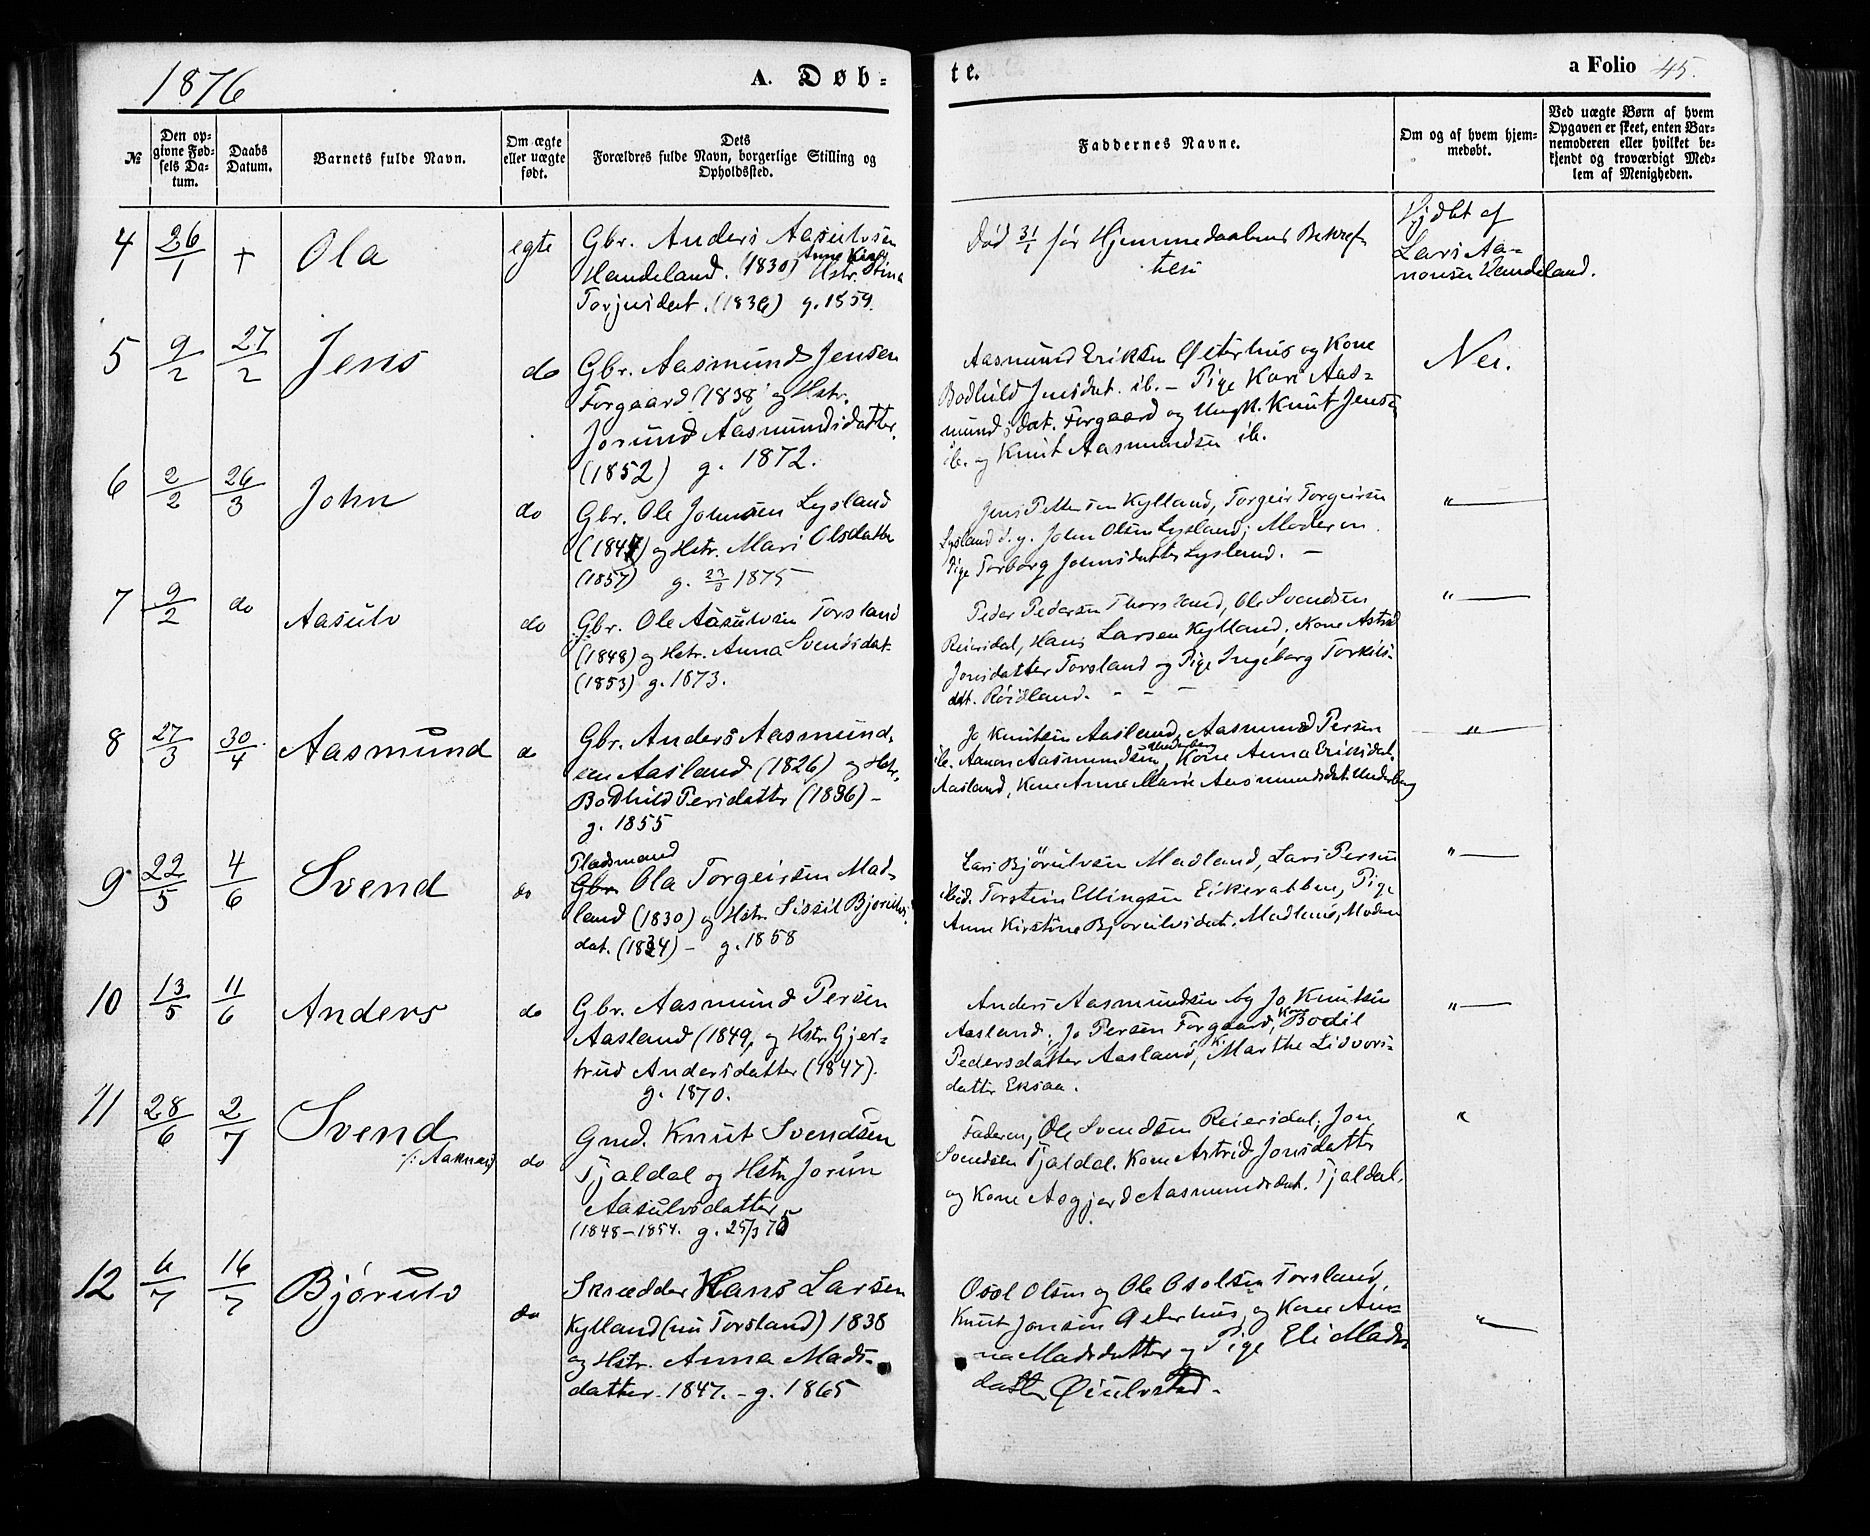 1876
A. Døb-
te.
a Folio 45.
№
Den op-
givne Fød-
sels Da-
tum.
Daabs
Datum.
Barnets fulde Navn.
Om ægte
eller uægte
født.
Dets
Forældres fulde Navn, borgerlige Stilling og
Opholdssted.
Faddernes Navne.
Om og af hvem hjem-
medøbt.
Ved uægte Børn af hvem
Opgaven er skeet, enten Bar-
nemoderen eller hvilket be-
kjendt og troværdigt Med-
lem af Menigheden.
4 26/1 + Ola egte
Gbr. Anders Aasulvsen
Handeland. (1830) Hstr. Stina
Torjusdat. (1836) g. 1859.
Død 31/1 før Hjemmedaabens Bekref-
telse
Hjdbt af
Lars Aa-
nonsen Handeland.
5 9/2 27/2 Jens do
Gbr. Aasmund Jensen
Forgaard (1838) og Hstr.
Jorund Aasmundsdatter.
(1852) g. 1872.
Aasmund Eriksen Østerhus og Kone
Bodhild Jensdat. ib. – Pige Kari Aas-
mundsdat. Forgaard og Ungk. Knut Jensen
ib. og Knut Aasmundsen ib.
Nei.
6 2/2 26/3 John do
Gbr. Ole Johnsen Lysland
(1847) og Hstr. Mari Olsdatter
(1857) g. 23/3 1875
Jens Pettersen Kylland, Torgeir Torgeirsen
Lysland d. y. John Olsen Lysland; Moderen
Pige Torborg Johnsdatter Lysland. –
"
7 9/2 do Aasulv do
Gbr. Ole Aasulvsen Torsland
(1848) og Hstr. Anna Svendsdat.
(1853) g. 1873.
Peder Pedersen Thorsland, Ole Svendsen
Reiersdal, Hans Larsen Kylland, Kone Astrid
Jonsdatter Torsland og Pige Ingeborg Torkils-
dat. Røisland. - - -
"
8 27/3 30/4 Aasmund do
Gbr. Anders Aasmund-
sen Aasland (1826) og Hstr.
Bodhild Persdatter (1836) –
g. 1855
Jo Knutsen Aasland, Aasmund Persen
ib. Aanon Aasmundsen Underberg, Kone Anna Eriksdat.
Aasland, Kone Anne Marie Aasmundsdat. Underberg
"
9 22/5 4/6 Svend do
Pladsmand
Gbr. Ola Torgeirsen Mad-
land (1830) og Hstr Sissil Bjorulvs-
dat. (1834) – g. 1858
Lars Bjørulvsen Madland, Lars Persen
ibid. Torstein Ellingsen Eikerabben, Pige
Anne Kirstine Bjorulvsdat. Madland, Moderen
"
10 13/5 11/6 Anders do
Gbr. Aasmund Persen
Aasland (1849) og Hstr. Gjer-
trud Andersdatter (1847).
g. 1870.
Anders Aasmundsen og Jo Knutsen
Aasland; Jo Persen Forgaard, Kone Bodil
Pedersdatter Aasland, K. Marthe Lidvors-
datter Eksaa.
"
11 28/6 2/7 Svend
do
Gmd. Knut Svendsen
Fjaldal og Hstr Jorun
Aasulvsdatter
(1848–1854. g. 25/3 75
Faderen, Ole Svendsen Reiersdal, Jon
Svendsen Fjaldal. Kone Astrid Jonsdatter
og Kone Aagjerd Aasmundsdat. Fjaldal.
"
12 6/7 16/7 Bjørulv do
Skrædder Hans Larsen
Kylland (nu Torsland) 1838
og Hstr. Anna Mads-
datter. 1847. – g. 1865
Osol Olsen og Ole Osolsen Torsland,
Knut Jonsen Østerhus, og Kone An-
na Madsdatter og Pige Eli Mads-
datter Øiulvstad.
"